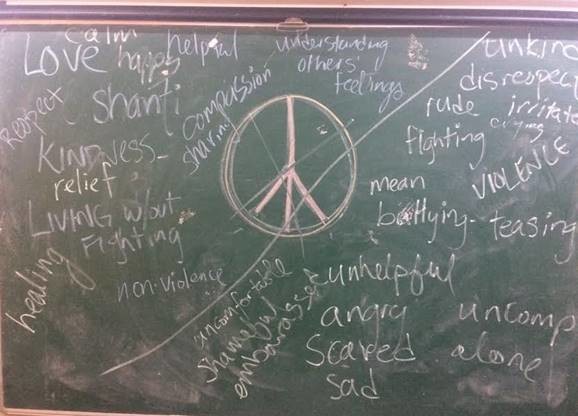 calm
LOVE
happy
helpful
understanding
others'
feelings
respect
Shanti
compassion
sharing
KINDNESS
relief
LIVING w/out
FIGHTING
healing
non-violence
unkind
disrespect
rude
irritate
fighting
VIOLENCE
mean
bullying
teasing
unhelpful
uncomfortable
shameful
embarassed
angry
uncomp
Scared
alone
sad